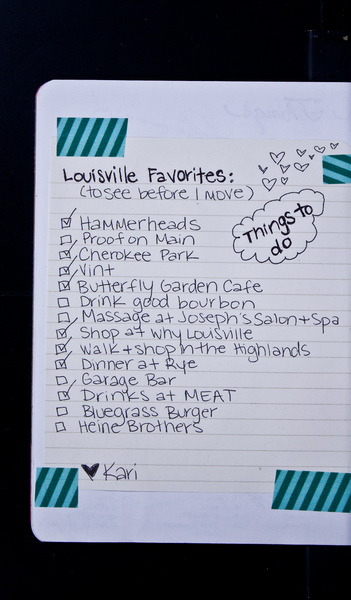 Louisville Favorites:
(to see before I move)
Things to
do
Hammerheads
Proof on Main
Cherokee Park
Vint
Butterfly Garden Cafe
Drink good bourbon
Massage at Joseph's Salon + Spa
Shop at Why Louisville
Walk + shop in the Highlands
Dinner at Rye
Garage Bar
Drinks at MEAT
Bluegrass Burger
Heine Brothers
♥ Kari